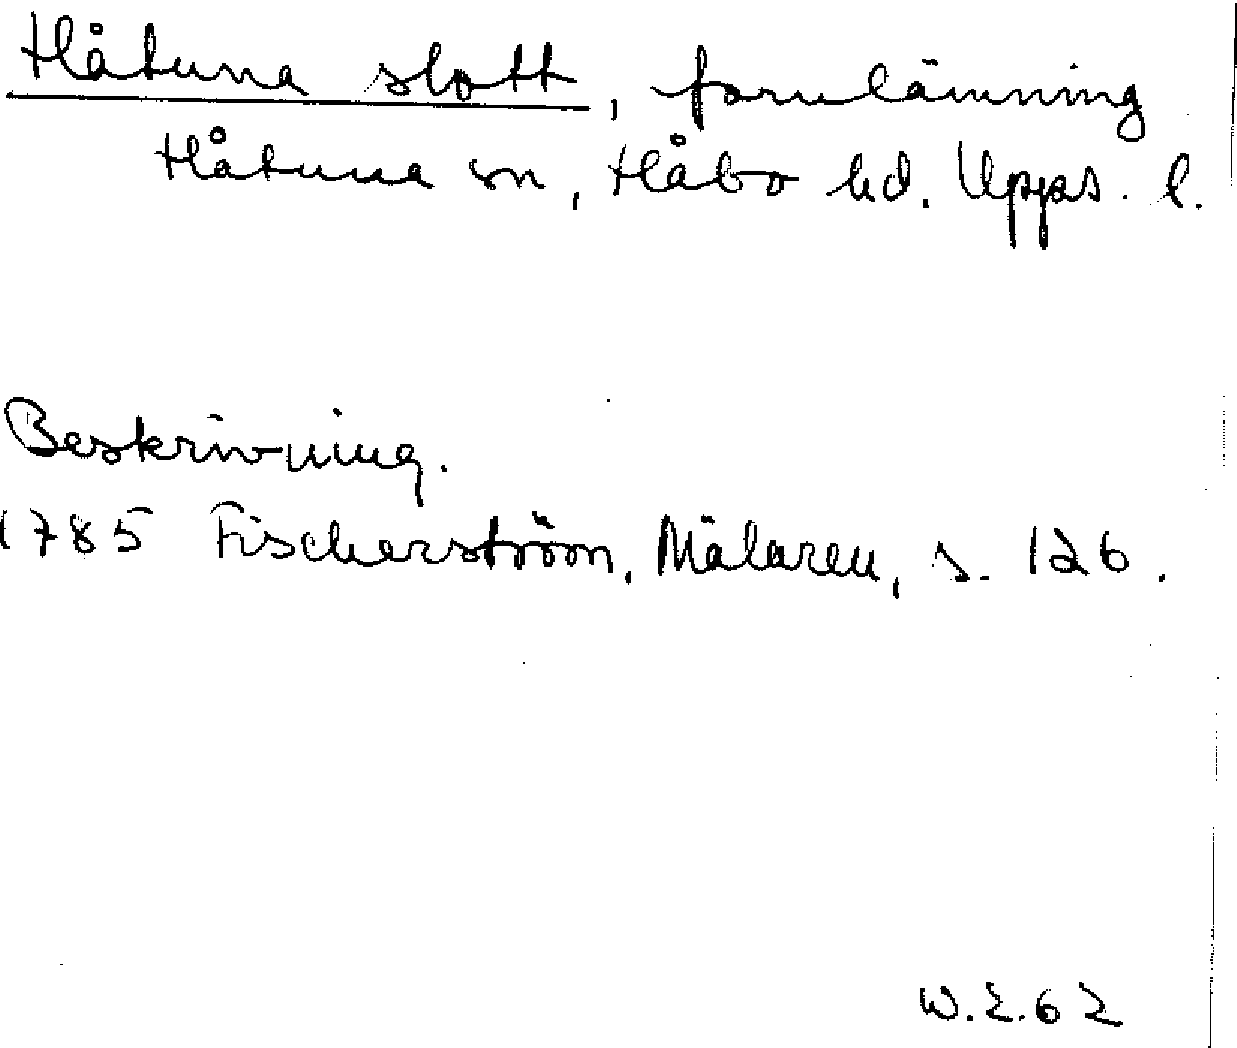 Håtuna slott, fornlämning
Håtuna sn, Håbo hd. Upps. l.
Beskrivning.
1785 Fischerström, Mälaren, s. 126.
W.E.62